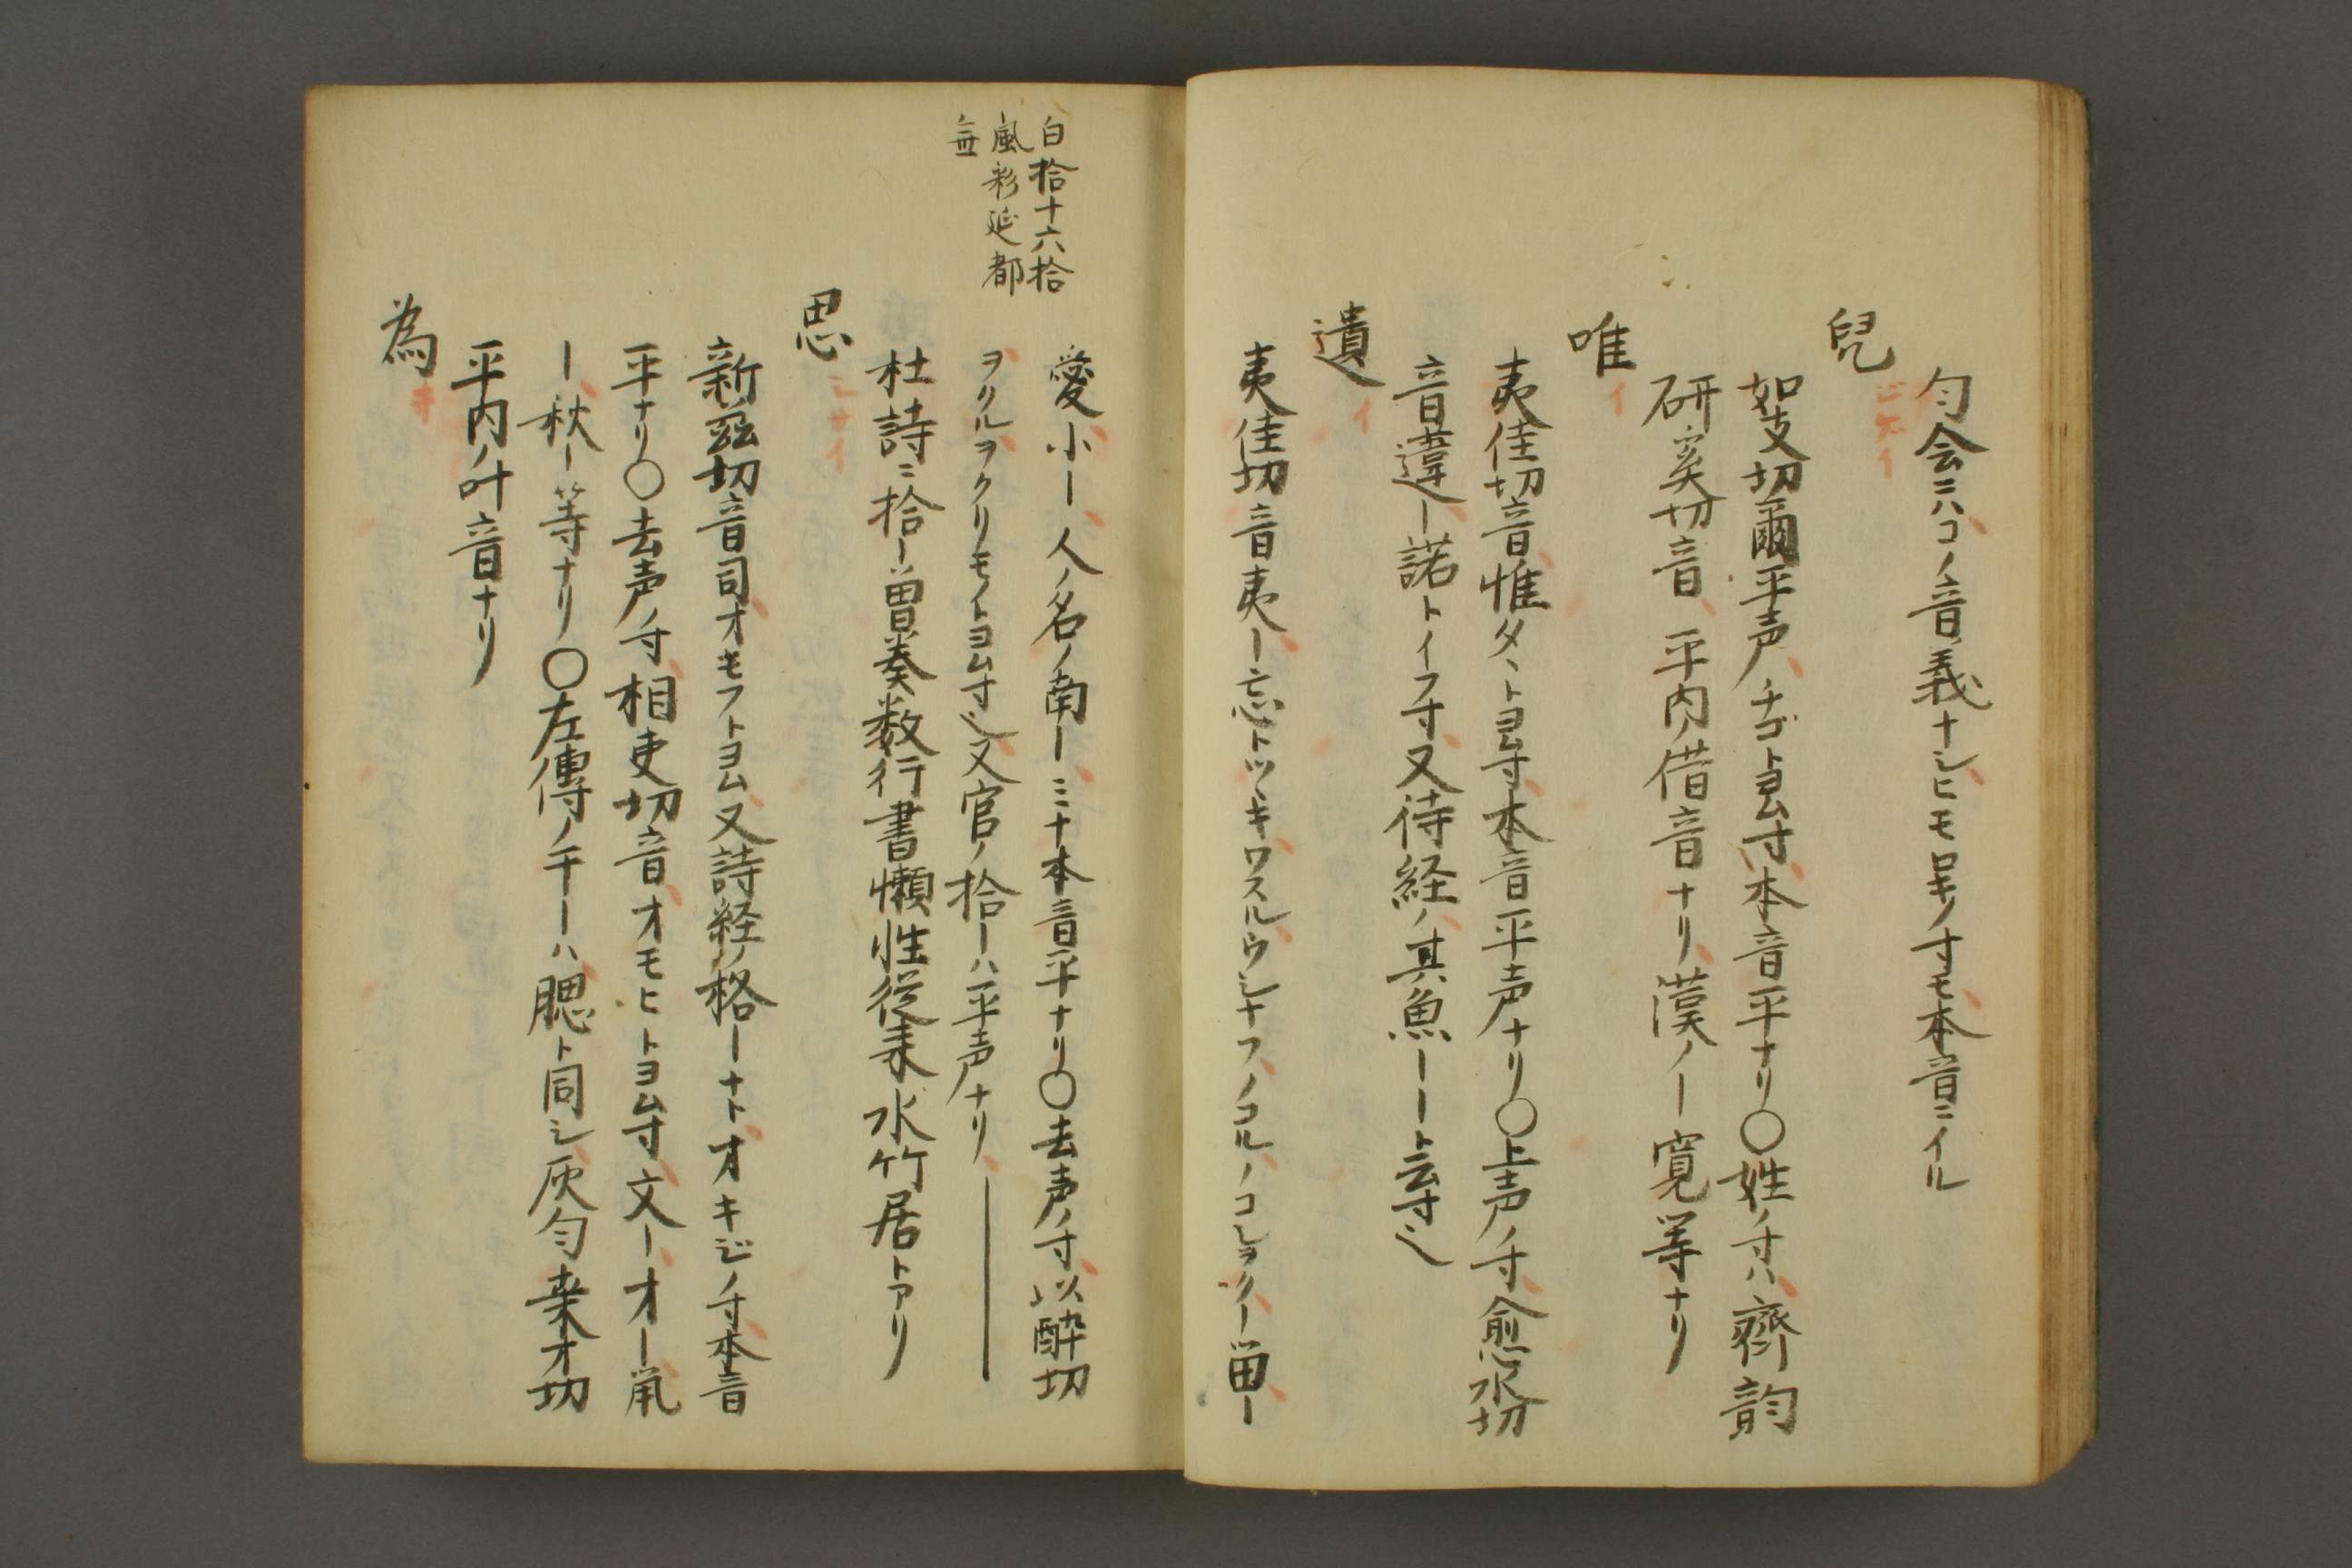 匀会ニハコノ音義ナシヒモロキノ寸モ本音ニイル
兒
ジ ズイ
如支切爾平声チゴトヨム寸本音平ナリ〇姓ノ寸ハ齊韵
研奚切音 平内ノ借音ナリ漢ノ一寛等ナリ
唯
イ
夷佳切音惟タヽトヨム寸本音平声ナリ〇上声ノ寸愈水切
音違ー諾トイフ寸又待経ノ其魚ーート云寸也
遺
イ
夷佳切音夷ー忘トツヽキワスルウシナフノコルノコレヲクー畄ー
愛小ー人ノ名ノ南ーミナ本音平ナリ〇去声ノ寸以醉切
ヲクルヲクリモノトヨム寸也又官ノ拾ーハ平声ナリ
杜詩ニ拾ー曽奏数行書懶性従来水竹居トアリ
白拾十六拾
風彩延都
無
思
シ サイ
新茲切音司オモフトヨム又詩経ノ格ーナトオキジノ寸本音
平ナリ〇去声ノ寸相吏切音オモヒトヨム寸文ーオー凮
ー秋ー等ナリ〇左傳ノ干ーハ腮ト同シ灰匀桒才切
平内ノ叶音ナリ
為
ヰ